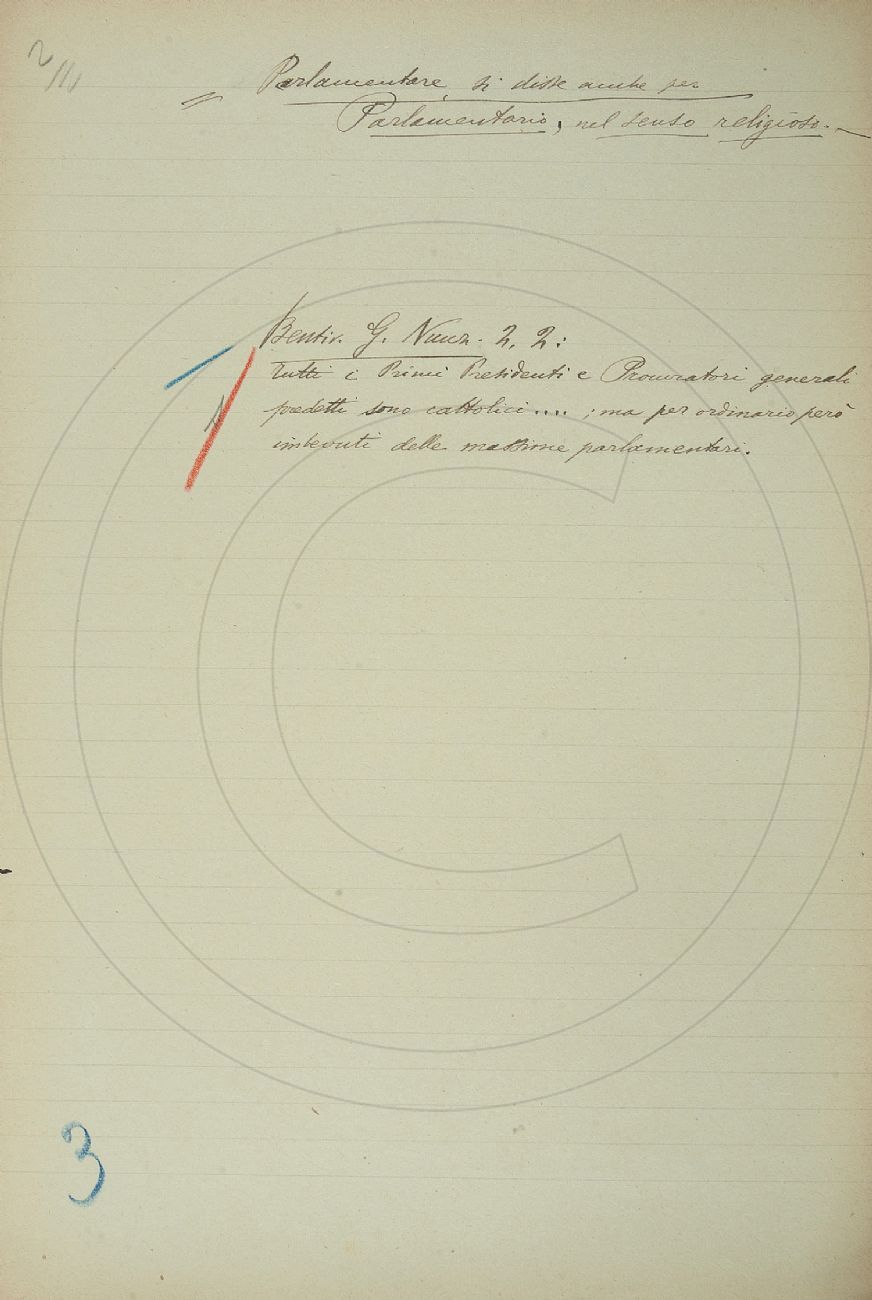 = Parlamentare, si disse anche per
Parlamentario, nel senso religioso. —
Bentiv. G. Nunz. 2. 2:
tutti i Primi Presidenti e Procuratori generali
predetti sono cattolici .... ; ma per ordinario però
imbevuti delle massime parlamentari.
3